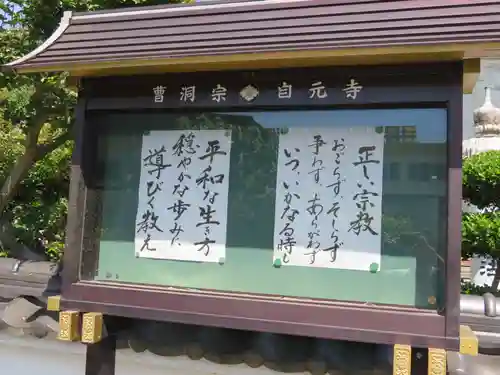 曹洞宗 自元寺
正しい宗教
おごらず、そしらず
争わず、あらがわず
いついかなる時も
平和な生き方
穏やかな歩みに
導びく教え